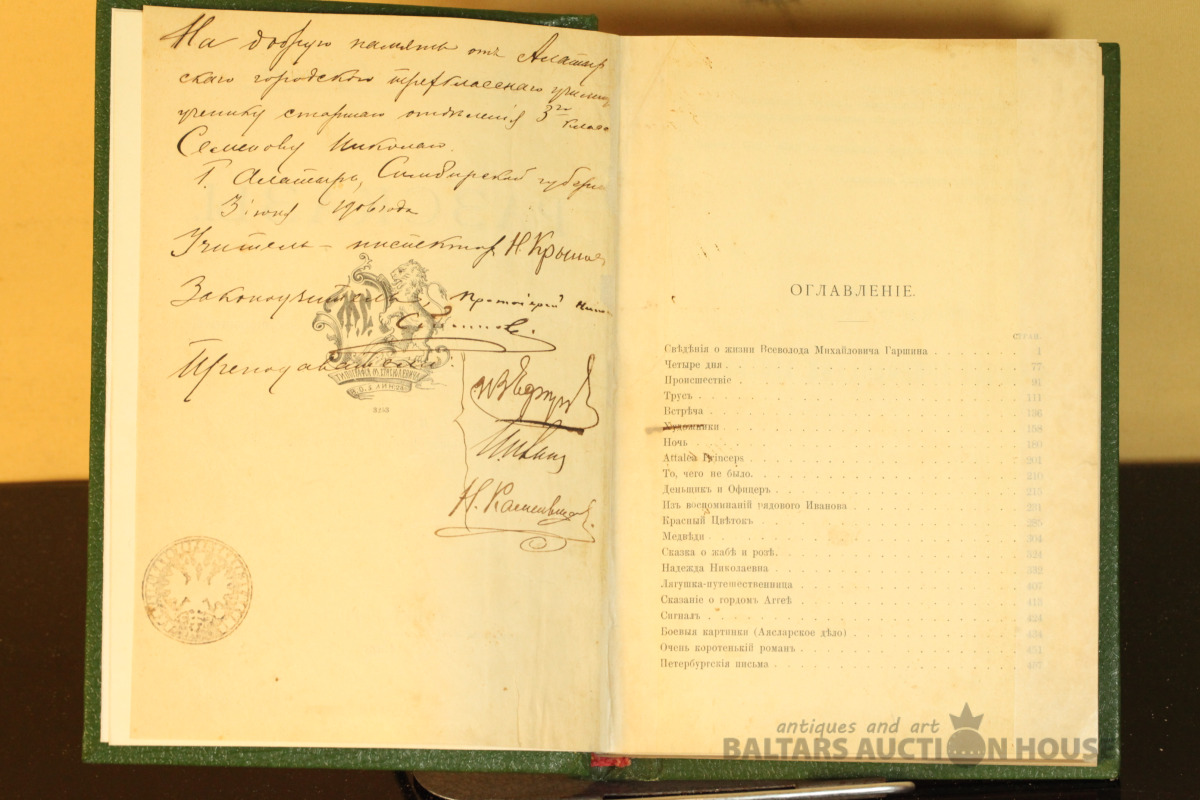 На добрую память отъ Алатыр
скаго городского трехкласснаго училищ
ученику старшаго отдѣленія 3го класс
Семенову Николаю.
Г. Алатырь, Симбирской губерн
3 іюня 1906 года
Учитель-инспекторъ Н. Крыло
Законоучитель, Протоіерей
Преподаватели:
ОГЛАВЛЕНІЕ.
СТРАН.
Свѣдѣнія о жизни Всеволода Михайловича Гаршина . . . . . . . . 1
Четыре дня . . . . . . . . 77
Происшествіе . . . . . . . . 91
Трусъ . . . . . . . . 111
Встрѣча . . . . . . . . 136
Художники . . . . . . . . 158
Ночь . . . . . . . . 180
Attalea Princeps . . . . . . . . 201
То, чего не было. . . . . . . . . 210
Деньщикъ и Офицеръ . . . . . . . . 215
Изъ воспоминаній рядового Иванова . . . . . . . . 231
Красный Цвѣтокъ . . . . . . . . 285
Медвѣди . . . . . . . . 304
Сказка о жабѣ и розѣ. . . . . . . . . 324
Надежда Николаевна . . . . . . . . 332
Лягушка-путешественница . . . . . . . . 407
Сказаніе о гордомъ Аггеѣ . . . . . . . . 413
Сигналъ . . . . . . . . 424
Боевыя картинки (Аясларское дѣло) . . . . . . . . 434
Очень коротенькій романъ . . . . . . . . 451
Петербургскія письма . . . . . . . . 457
antiques and art
BALTARS AUCTION HOUSE